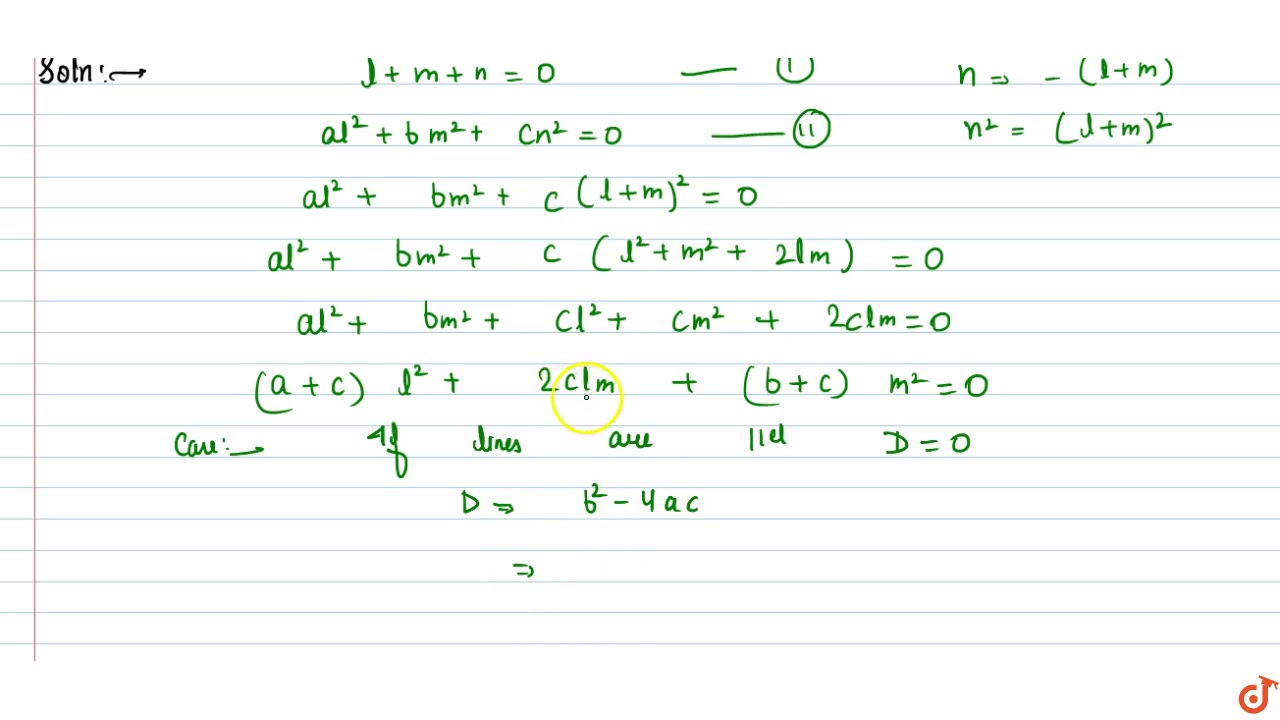 Soln:→ l + m + n = 0 —— (I) n ⇒ - (l + m)
al² + bm² + cn² = 0 —— (II) n² = (l+m)²
al² + bm² + c (l+m)² = 0
al² + bm² + c (l² + m² + 2lm) = 0
al² + bm² + cl² + cm² + 2clm = 0
(a + c) l² + 2.clm + (b + c) m² = 0
Case:→ If lines are ||el D = 0
D ⇒ b² - 4ac
⇒